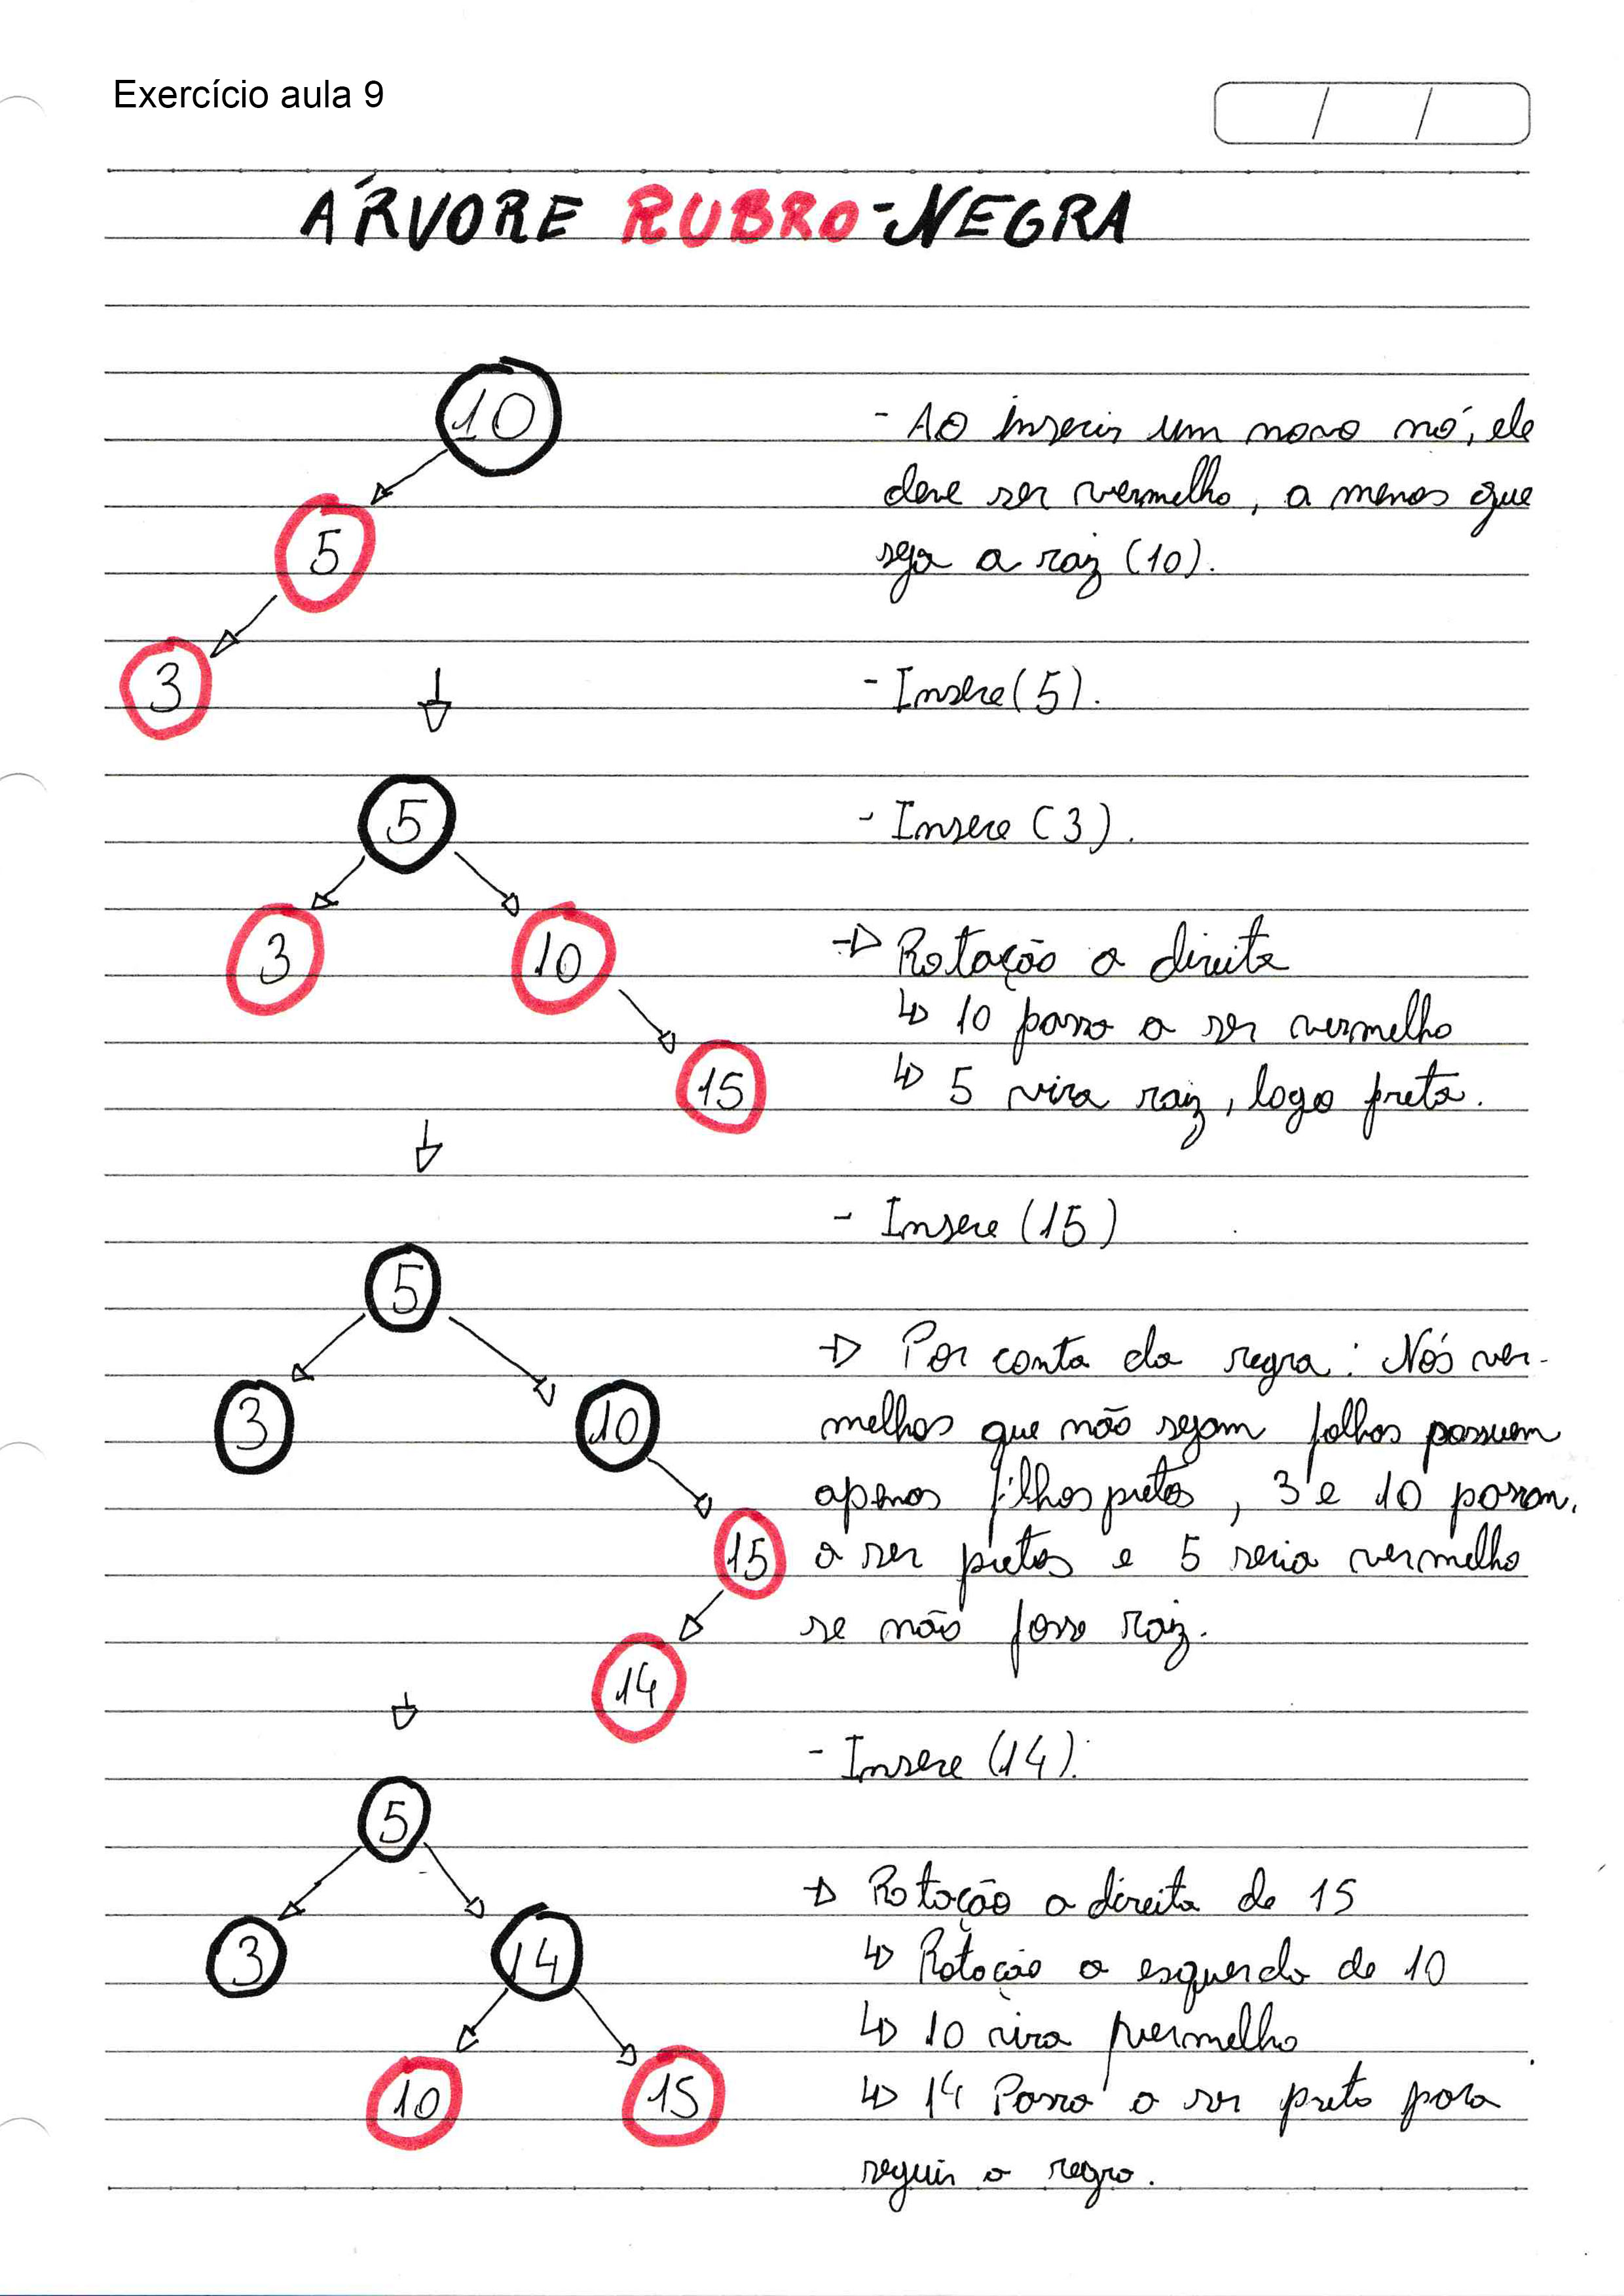 Exercício aula 9
/ /
ÁRVORE RUBRO-NEGRA
10
- Ao inserir um novo nó, ele
deve ser vermelho, a menos que
5
seja a raiz (10).
3
- Insere (5).
5
- Insere (3).
3 10
→ Rotação a direita
↳ 10 passa a ser vermelho
15
↳ 5 vira raiz, logo preta.
- Insere (15)
5
→ Por conta da regra: Nós ver-
3 10
melhos que não sejam folhas possuem
apenas filhos pretos, 3 e 10 passam
15
a ser pretos e 5 seria vermelho
se não fosse raiz.
14
- Insere (14).
5
→ Rotação a direita de 15
3 14
↳ Rotação a esquerda de 10
↳ 10 vira vermelho
10 15
↳ 14 Passa a ser preto para
seguir a regra.